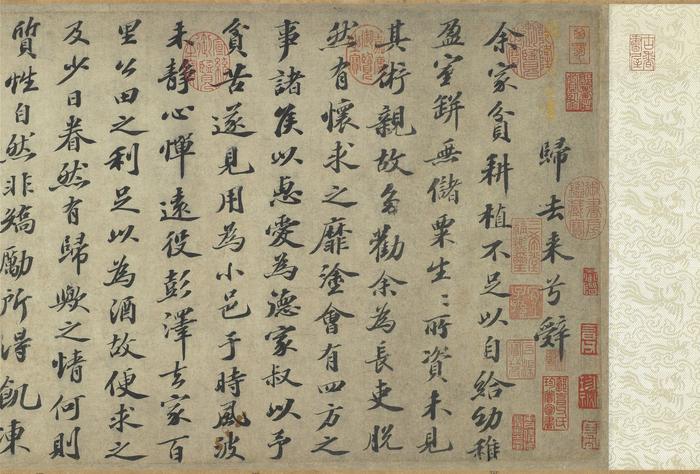 歸去来兮辭
余家貧耕植不足以自給幼稚
盈室缾無儲粟生〻所資未見
其術親故多勸余為長吏脱
然有懷求之靡塗會有四方之
事諸侯以惠愛為德家叔以予
貧苦遂見用為小邑于時風波
未静心憚遠役彭澤去家百
里公田之利足以為酒故便求之
及少日眷然有歸歟之情何則
質性自然非矯勵所得飢凍